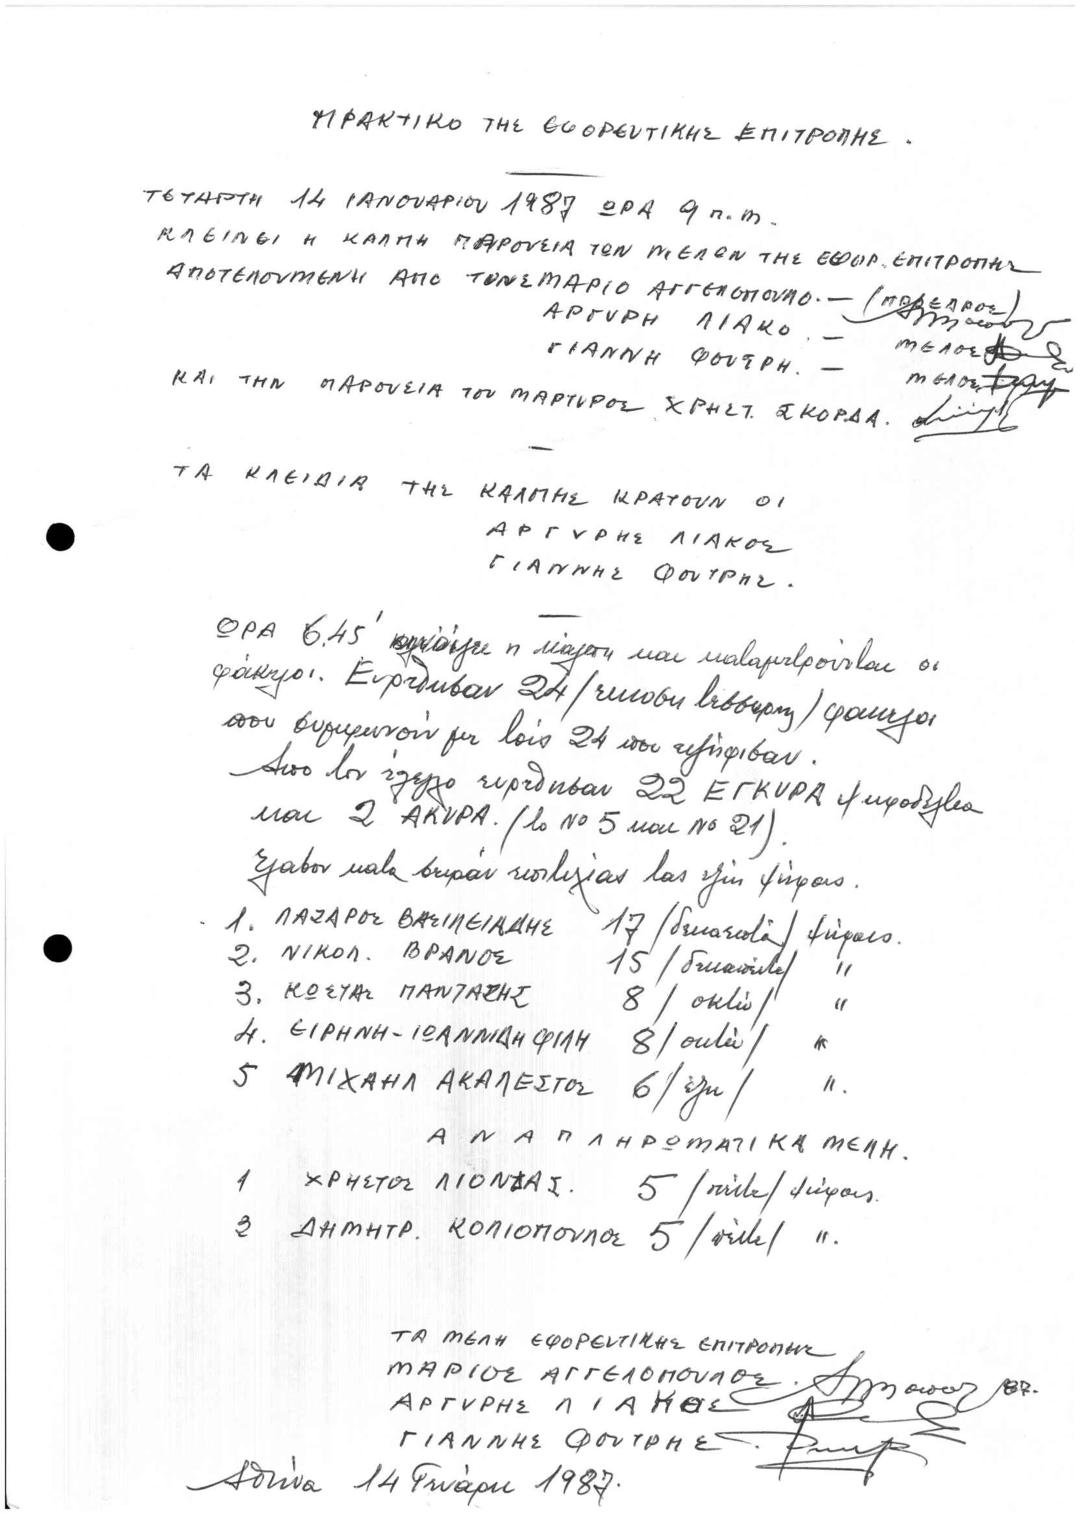 ΠΡΑΚΤΙΚΟ ΤΗΣ ΕΦΟΡΕΥΤΙΚΗΣ ΕΠΙΤΡΟΠΗΣ.
ΤΕΤΑΡΤΗ 14 ΙΑΝΟΥΑΡΙΟΥ 1987 ΩΡΑ 9 π.μ.
ΚΛΕΙΝΕΙ Η ΚΑΛΠΗ ΠΑΡΟΥΣΙΑ ΤΩΝ ΜΕΛΩΝ ΤΗΣ ΕΦΟΡ. ΕΠΙΤΡΟΠΗΣ
ΑΠΟΤΕΛΟΥΜΕΝΗ ΑΠΟ ΤΟΥΣ ΜΑΡΙΟ ΑΓΓΕΛΟΠΟΥΛΟ. — (ΠΡΟΕΔΡΟΣ)
ΑΡΓΥΡΗ ΛΙΑΚΟ. — ΜΕΛΟΣ
ΓΙΑΝΝΗ ΦΟΥΤΡΗ. — ΜΕΛΟΣ
ΚΑΙ ΤΗΝ ΠΑΡΟΥΣΙΑ ΤΟΥ ΜΑΡΤΥΡΟΣ ΧΡΗΣΤ. ΣΚΟΡΔΑ.
ΤΑ ΚΛΕΙΔΙΑ ΤΗΣ ΚΑΛΠΗΣ ΚΡΑΤΟΥΝ ΟΙ
ΑΡΓΥΡΗΣ ΛΙΑΚΟΣ
ΓΙΑΝΝΗΣ ΦΟΥΤΡΗΣ.
ΩΡΑ 6.45' η κάλπη και καταμετρούνται οι
φάκελοι. Ευρέθησαν 24 /εικοσι τεσσαρες/ φακελοι
που συμφωνούν με τούς 24 που εψήφισαν.
Απο τον έλεγχο ευρέθησαν 22 ΕΓΚΥΡΑ ψηφοδέλτια
και 2 ΑΚΥΡΑ. (το Νο 5 και Νο 21).
Έλαβον κατα σειράν επιτυχίας τας εξής ψήφους.
1. ΛΑΖΑΡΟΣ ΒΑΣΙΛΕΙΑΔΗΣ 17 /δεκαεπτά/ ψήφους.
2. ΝΙΚΟΛ. ΒΡΑΝΟΣ 15 /δεκαπέντε/ "
3. ΚΩΣΤΑΣ ΠΑΝΤΑΖΗΣ 8 / οκτώ / "
4. ΕΙΡΗΝΗ-ΙΩΑΝΝΙΔΗ ΦΙΛΗ 8 / οκτώ / "
5 ΜΙΧΑΗΛ ΑΚΑΛΕΣΤΟΣ 6 / έξη / ".
ΑΝΑΠΛΗΡΩΜΑΤΙΚΑ ΜΕΛΗ.
1 ΧΡΗΣΤΟΣ ΛΙΟΝΤΑΣ. 5 /πέντε/ ψήφους.
2 ΔΗΜΗΤΡ. ΚΟΛΙΟΠΟΥΛΟΣ 5 /πέντε/ ".
ΤΑ ΜΕΛΗ ΕΦΟΡΕΥΤΙΚΗΣ ΕΠΙΤΡΟΠΗΣ
ΜΑΡΙΟΣ ΑΓΓΕΛΟΠΟΥΛΟΣ. 87.
ΑΡΓΥΡΗΣ ΛΙΑΚΟΣ
ΓΙΑΝΝΗΣ ΦΟΥΤΡΗΣ.
Αθήνα 14 Γενάρη 1987.